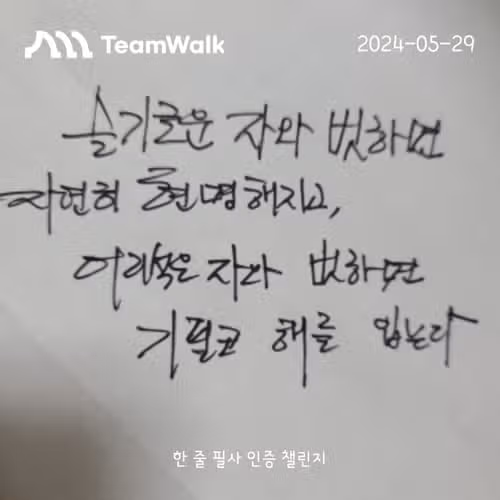 TeamWalk
2024-05-29
슬기로운 자와 벗하면
자연히 현명해지고,
어리석은 자와 벗하면
기필코 해를 입는다
한 줄 필사 인증 챌린지